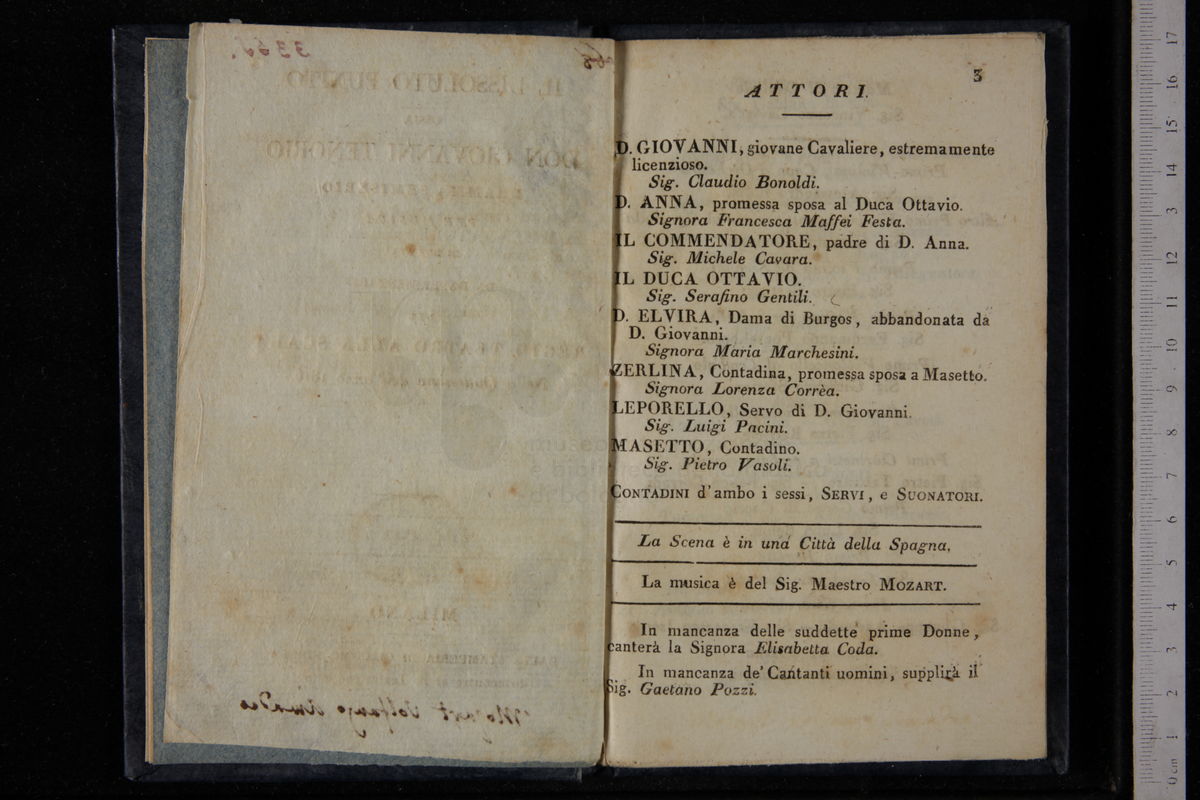 3
ATTORI.
D. GIOVANNI, giovane Cavaliere, estremamente
licenzioso.
Sig. Claudio Bonoldi.
D. ANNA, promessa sposa al Duca Ottavio.
Signora Francesca Maffei Festa.
IL COMMENDATORE, padre di D. Anna.
Sig. Michele Cavara.
IL DUCA OTTAVIO.
Sig. Serafino Gentili.
D. ELVIRA, Dama di Burgos, abbandonata da
D. Giovanni.
Signora Maria Marchesini.
ZERLINA, Contadina, promessa sposa a Masetto.
Signora Lorenza Corrèa.
LEPORELLO, Servo di D. Giovanni.
Sig. Luigi Pacini.
MASETTO, Contadino.
Sig. Pietro Vasoli.
CONTADINI d'ambo i sessi, SERVI, e SUONATORI.
La Scena è in una Città della Spagna.
La musica è del Sig. Maestro MOZART.
In mancanza delle suddette prime Donne,
canterà la Signora Elisabetta Coda.
In mancanza de' Cantanti uomini, supplirà il
Sig. Gaetano Pozzi.
0 cm 1 2 3 4 5 6 7 8 9 10 11 12 13 14 15 16 17